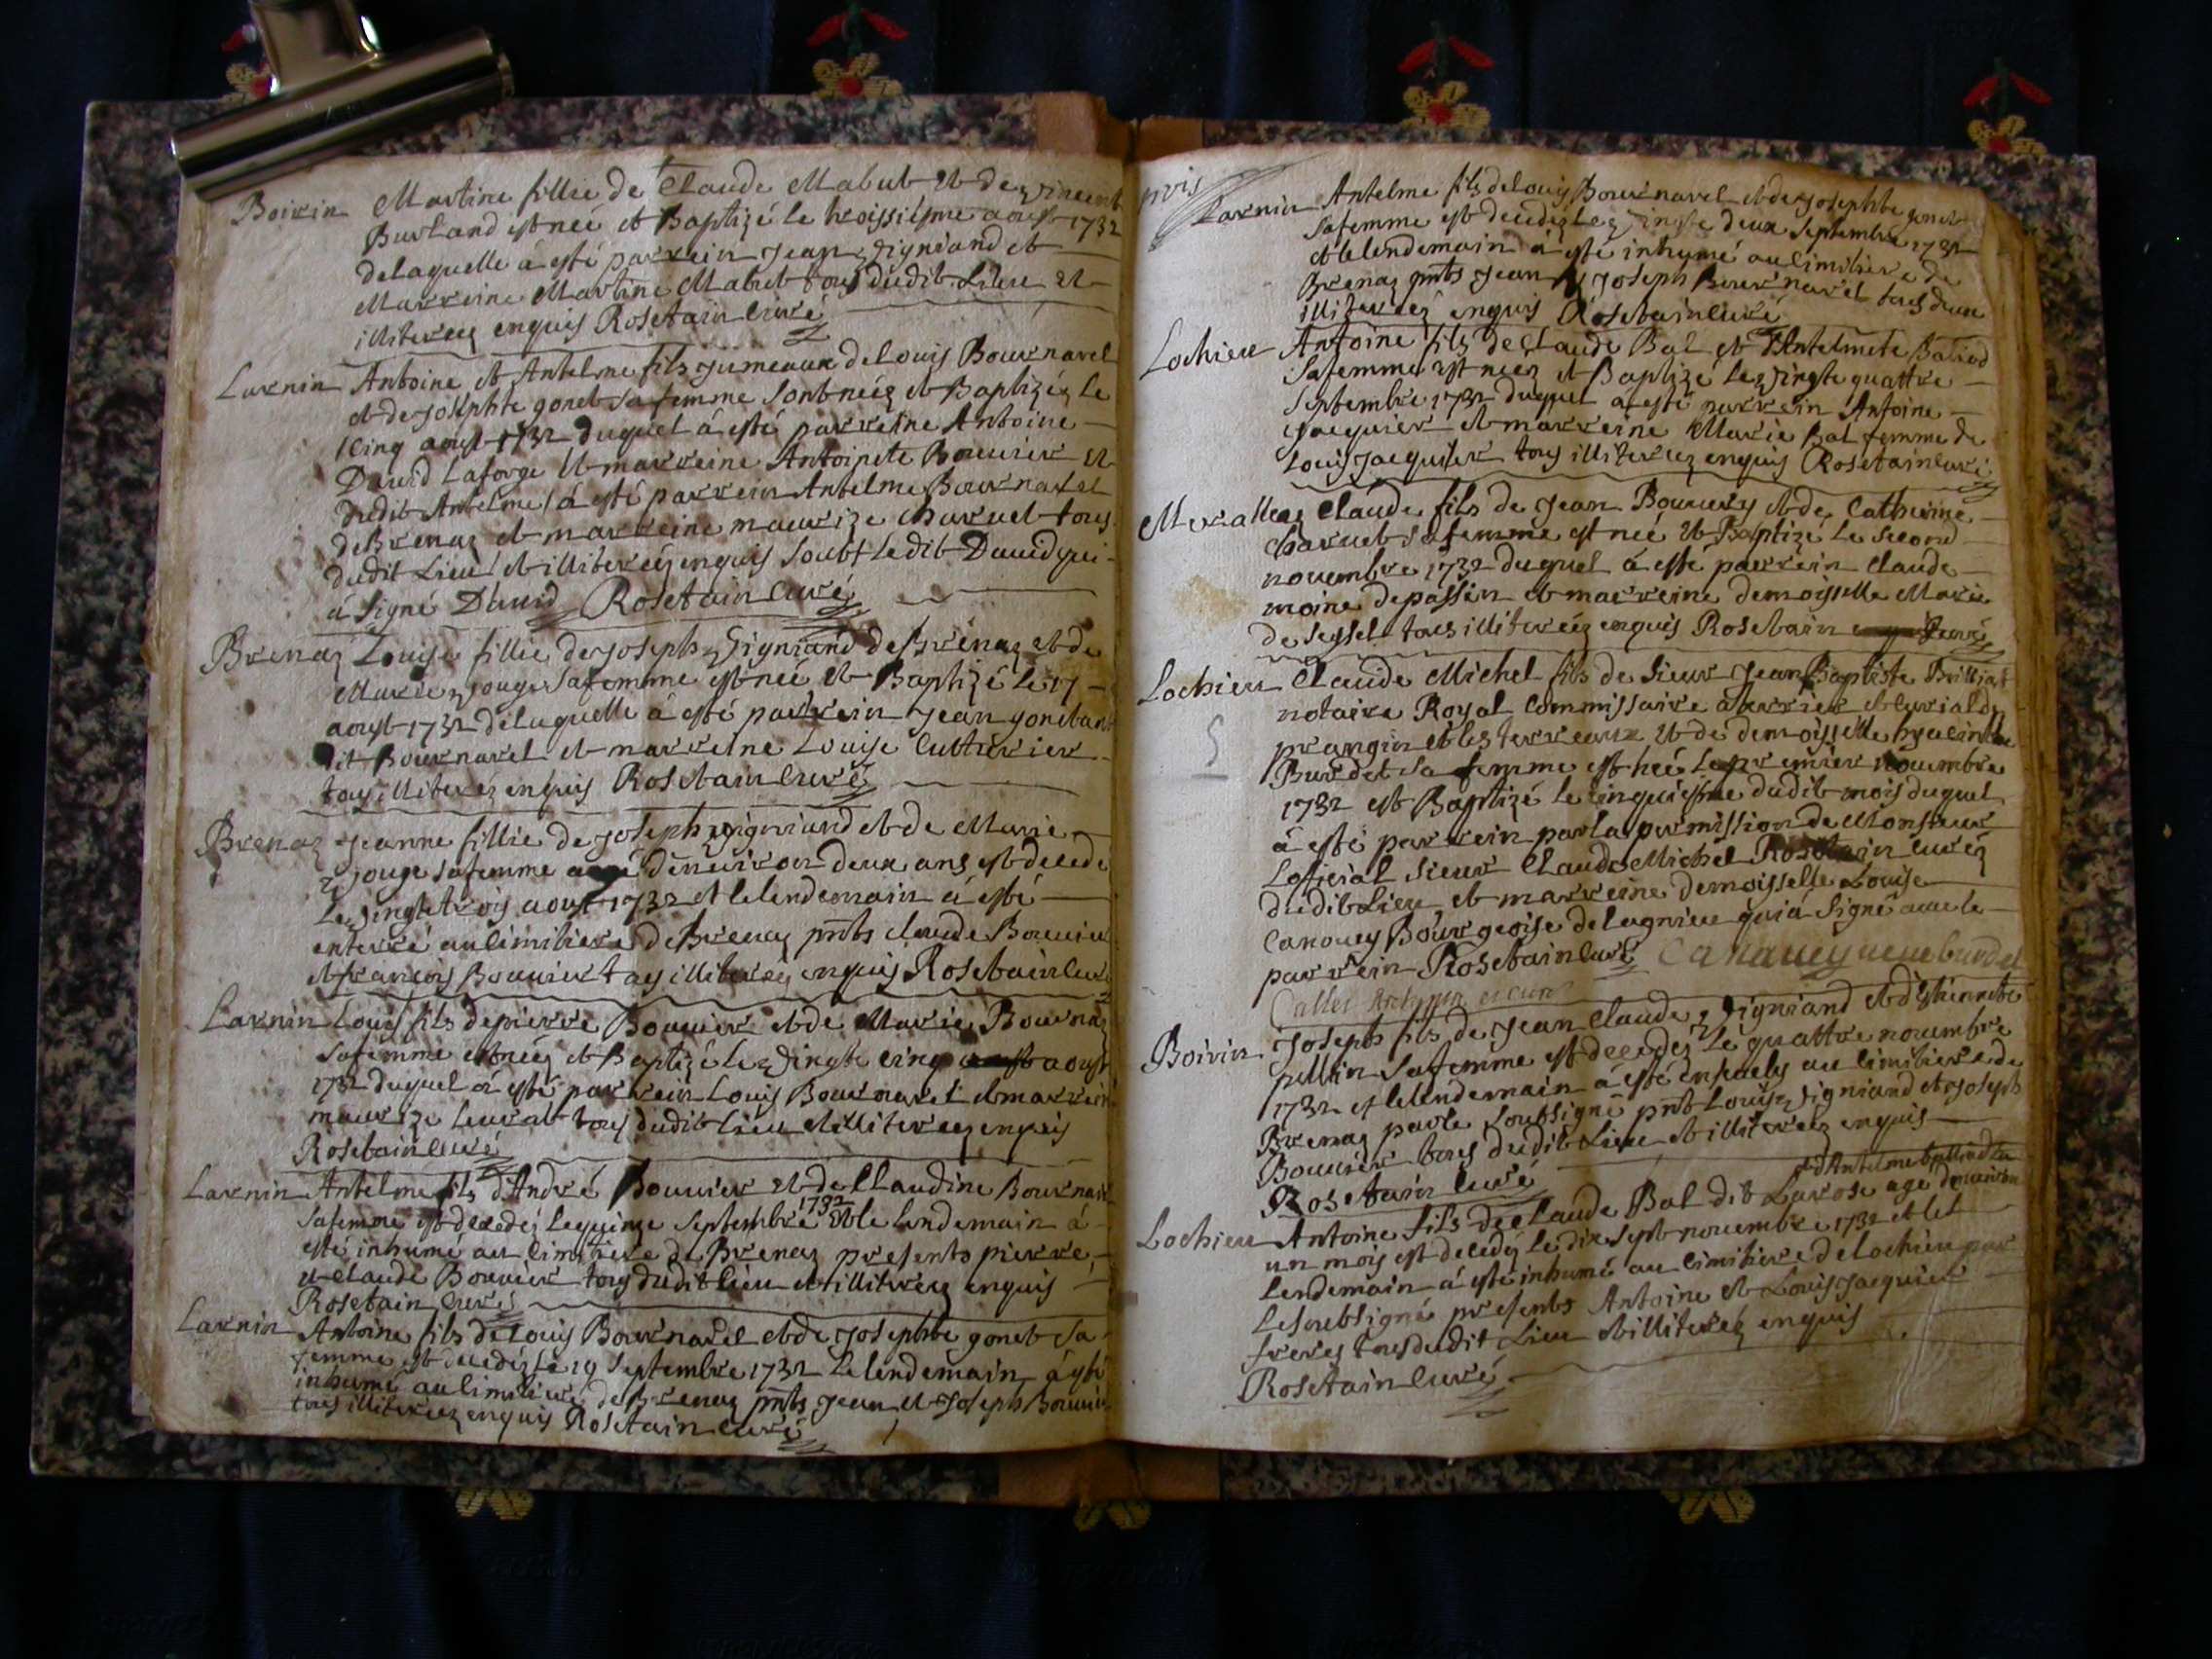 Boirin Martine fillie de Claude Mabut et de Vincent
Burland est neé et Baptizé le troissiesme aoust 1732
delaquelle á esté parrein Jean Vigniand et
Marreine Martine Mabut tous dudit Lieu et
illitereez enquis Rosetain Curé
Larnin Antoine et Antelme fils Jumeaux de Louis Bournarel
et de Josephte gonet sa femme sont neéz et Baptizéz Le
Cinq aoust 1732 duquel á esté parreine Antoine
David Laforge et marreine Antoinete Bouvier et
dudit Antelme á esté parrein Antelme Bournarel
de Brenaz et marreine maurize Charuet tous
dudit Lieu et illitereéz enquis Soubt Ledit David qui
á Signé David Rosetain Curé
Brenaz Louise fillie de Joseph Vigniand de Brenaz et de
Marie Jouge sa femme est neé et Baptizé Le 17
aoust 1732 delaquelle á esté parrein Jean gonet
dit Bournarel et marreine Louise Cuttivier
tous illiteréz enquis Rosetain Curé
Brenaz Jeanne fillie de Joseph Vigniand et de Marie
Jouge sa femme deux ans est decede
Le Vingt et trois aoust 1732 et le lendemain á esté
enterré au Cimitiere de Brenaz pnts Claude Bouvier
et francois Bouvier tous illiterez enquis Rosetain Curé
Larnin Louis fils de pierre Bouvier et de Marie Bournarel
sa femme est neéz et Baptizé le Vingte cinq aoust
1732 duquel á esté parrein Louis Bournarel et marreine
maurize tous dudit Lieu et illitereez enquis
Rosetain Curé
Larnin Antelme fils d'André Bouvier et de Claudine Bournarel
sa femme est decedéz le quinze Septembre 1732 et le lendemain á
esté inhumé au Cimitiere de Brenaz presents pierre
et Claude Bouvier tous dudit lieu et illitereez enquis
Rosetain Curé
Larnin Antoine fils de Louis Bournarel et de Josephte gonet sa
femme est decedéz Le 19 Septembre 1732 Le lendemain á esté
inhumé au Cimitiere de Brenaz pnts Jean et Joseph Bouvier
tous illitereez enquis Rosetain Curé
Larnin Antelme fils de Louis Bournarel et de Josephte gonet
sa femme est decedéz Le Vingte deux Septembre 1732
et le lendemain á esté inhumé au Cimitiere de
Brenaz pnts Jean Joseph Bournarel tous deux
illitereéz enquis Rosetain Curé
Lochieu Antoine fils de Claude Bal et d'Antelmete Baliod
sa femme est neez et Baptizé Le Vingte quattre
Septembre 1732 duquel a esté parrein Antoine
Jacquier et marreine Marie Bal femme de
Louis Jacquier tous illitereez enquis Rosetain Curé
Claude fils de Jean Bouvery et de Catherine
Charuet sa femme est neé et Baptizé Le Second
novembre 1732 duquel á esté parrein Claude
moine depassin et marreine demoisselle Marie
de Seyssel tous illitereéz enquis Rosetain Curé
Lochieu Claude Michel fils de Sieur Jean Baptiste Brilliat
notaire Royal Commissaire á terrier et Curial de
prangin et les terreaux et de demoisselle hyacinthe
Burdet sa femme est neé Le premier novembre
1732 est Baptizé le Cinquiesme dudit mois duquel
á esté parrein par la permission de Monsieur
Loficial Sieur Claude Michel Rosetain Curéz
dudit Lieu et marreine demoisselle Louise
Canouey Bourgeoise de lagnieu qui á Signé avec le
parrein Rosetain Curé
Boirin Joseph fils de Jean Claude Vigniand et d'Ethiennete
pellin sa femme est decedéz Le quattre novembre
1732 et le lendemain á esté Ensevely au Cimitiere de
Brenaz par le Soubsigné pnt Louis Vigniand et Joseph
Bouvier tous dudit Lieu et illitereéz enquis
Rosetain Curé
Lochieu Antoine fils de Claude Bal dit Larose age denviron
un mois est decedéz le dix sept novembre 1732 et Le
lendemain á esté inhumé au Cimitiere de Lochieu par
Le Soubsigné presents Antoine et Louis Jacquier
freres tous dudit Lieu et illitereéz enquis
Rosetain Curé